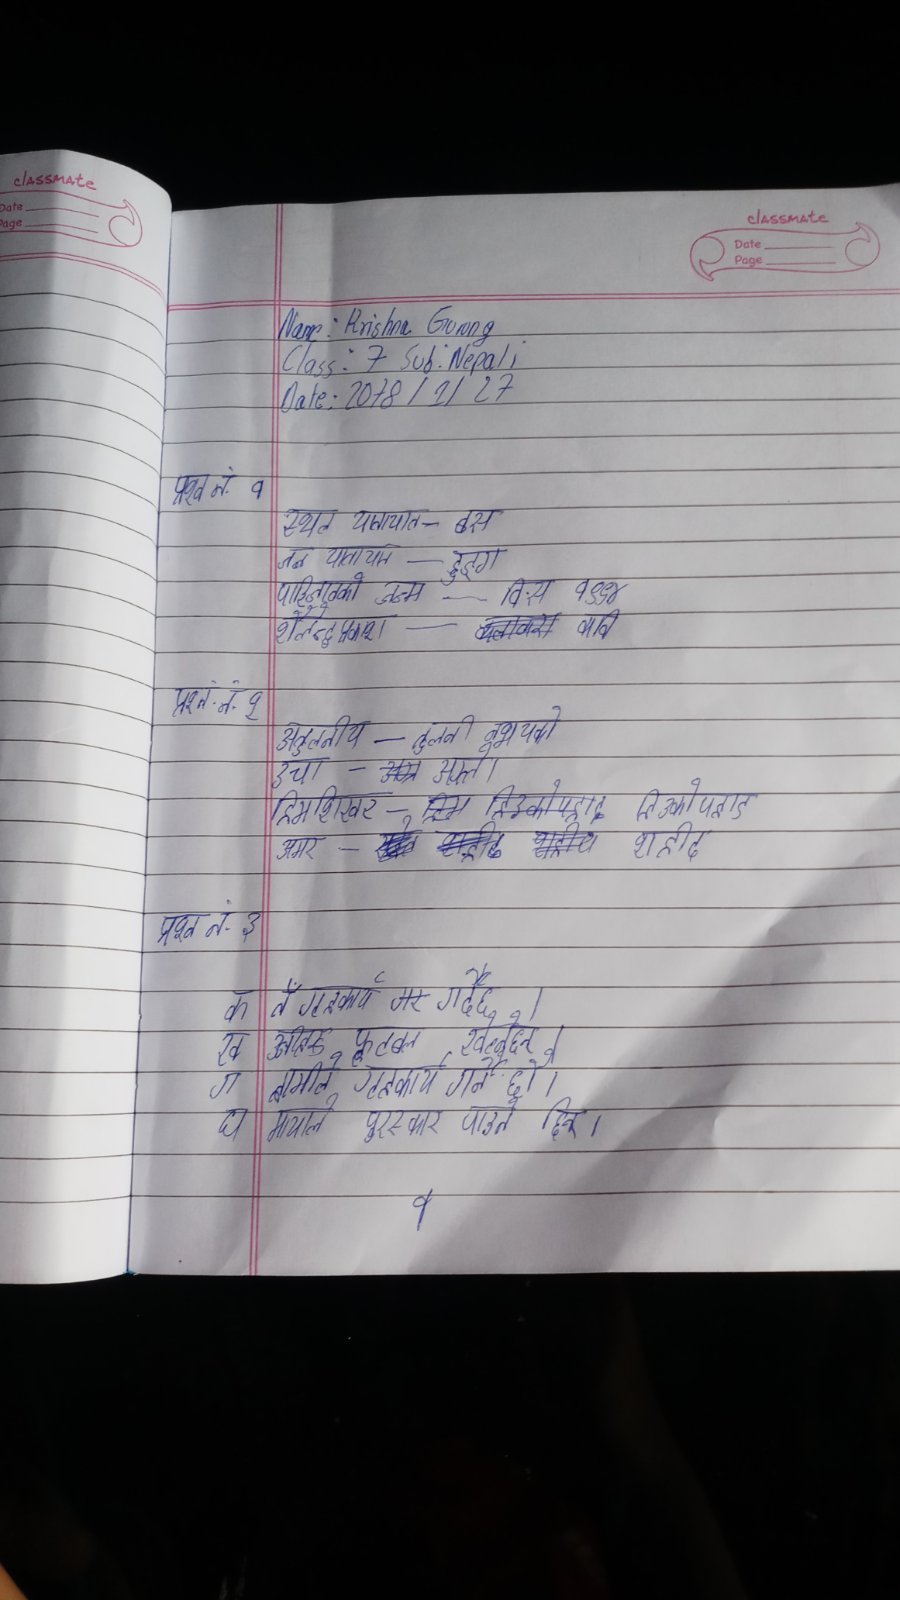 classmate
Date
Page
classmate
Date
Page
Name: Krishna Gurung
Class: 7 Sub: Nepali
Date: 2078/1/27
प्रश्न नं. १
स्थल यातायात — बस
जल यातायात — डुङ्गा
जन्म — वि.स १९९४
कवि
प्रश्नं. नं. २
अतुलनीय — तुलना नभएको
उचा — अग्लो।
हिमशिखर — हिम हिउको पहाड हिउको पहाड
अमर — शहीद
प्रश्न नं. ३
क तँ गृहकार्य गर्दैछ्स्।
ख फुटबल खेल्नुहुन्छ।
ग हामीले गृहकार्य गर्ने छौं।
घ मायाले पुरस्कार पाउने छिन्।
१